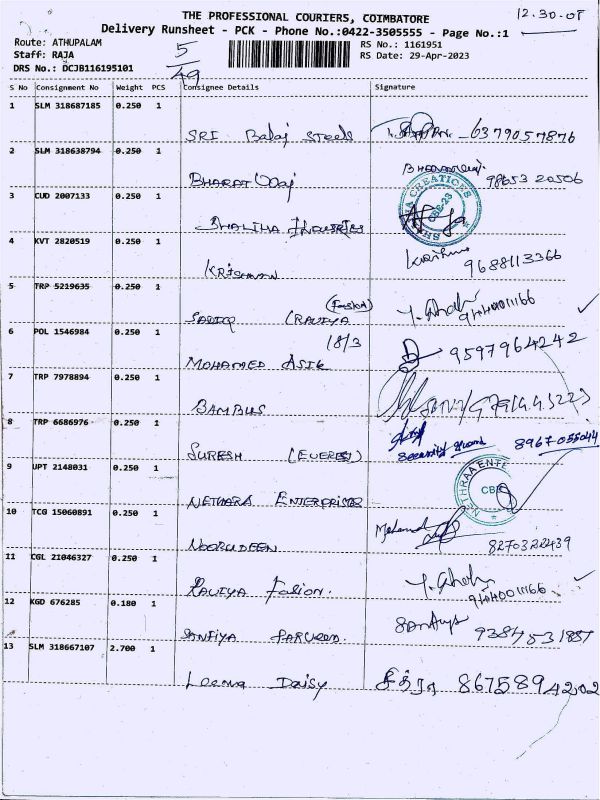 THE PROFESSIONAL COURIERS, COIMBATORE
12.30.08
Delivery Runsheet - PCK - Phone No.:0422-3505555 - Page No.:1
Route: ATHUPALAM
Staff: RAJA
DRS No.: DCJB116195101
5/49
RS No.: 1161951
RS Date: 29-Apr-2023
S No Consignment No Weight PCS Consignee Details Signature
1 SLM 318687185 0.250 1
SRI Balaj Steels 6379057876
2 SLM 318638794 0.250 1
BHARAT 98653 20506
3 CUD 2007133 0.250 1
CREATICES CBE-23
INDUSTRIES
4 KVT 2820519 0.250 1
KRISHNAN Krishna 9688113366
5 TRP 5219635 0.250 1
SADIQ (RAVIYA (Fashion)
6 POL 1546984 0.250 1
18/3
MOHAMED ASIK 9597964242
7 TRP 7978894 0.250 1
BAMBUS
8 TRP 6686976 0.250 1
SURESH (EVEREST) Security Guard 8967055044
9 UPT 2148031 0.250 1
NETHRAA ENTE CBE
NETHARA ENTERPRISES
10 TCG 15060891 0.250 1
NOORUDEEN Mohamed 8270322439
11 CGL 21046327 0.250 1
RAVIYA Fasion.
12 KGD 676285 0.180 1
SANFIYA PARVEEN.
13 SLM 318667107 2.700 1
Leema Daisy சித்ரா 8675894202